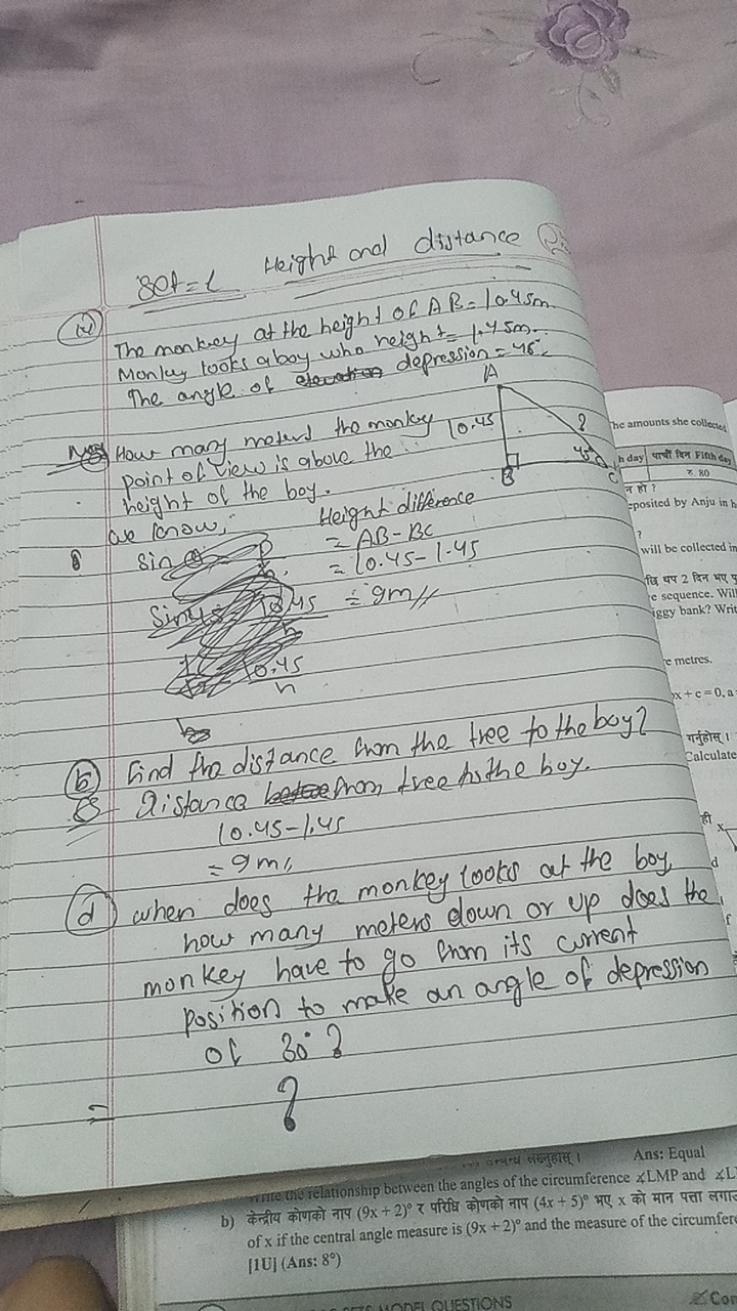 Set=1 Height and distance
The monkey at the height of AB=10.45m.
Monkey looks a boy who height=1.45m.
The angle of depression=45°
A
10.45
?
45°
B
C
How many meters the monkey
point of view is above the
height of the boy.
we know,
Height difference
Sin
= AB-BC
= 10.45-1.45
= 9m//
Sin45 10.45
10.45
h
b) Find the distance from the tree to the boy?
Distance from tree to the boy.
10.45-1.45
=9m//
d) when does the monkey looks at the boy,
how many meters down or up does the
monkey have to go from its current
position to make an angle of depression
of 30°?
= ?
he amounts she collected
h day पाचौं दिन Fifth day
रु. 80
न हो ?
eposited by Anju in h
?
will be collected in
e sequence. Wil
iggy bank? Writ
e metres.
x + c = 0, a
गर्नुहोस् ।
Calculate
ही
x
d
f
Ans: Equal
Write the relationship between the angles of the circumference ∡LMP and ∡L
b) केन्द्रीय कोणको नाप (9x + 2)° र परिधि कोणको नाप (4x + 5)° भए x को मान पत्ता लगाउ
of x if the central angle measure is (9x + 2)° and the measure of the circumfere
[1U] (Ans: 8°)
MODEL QUESTIONS
Com